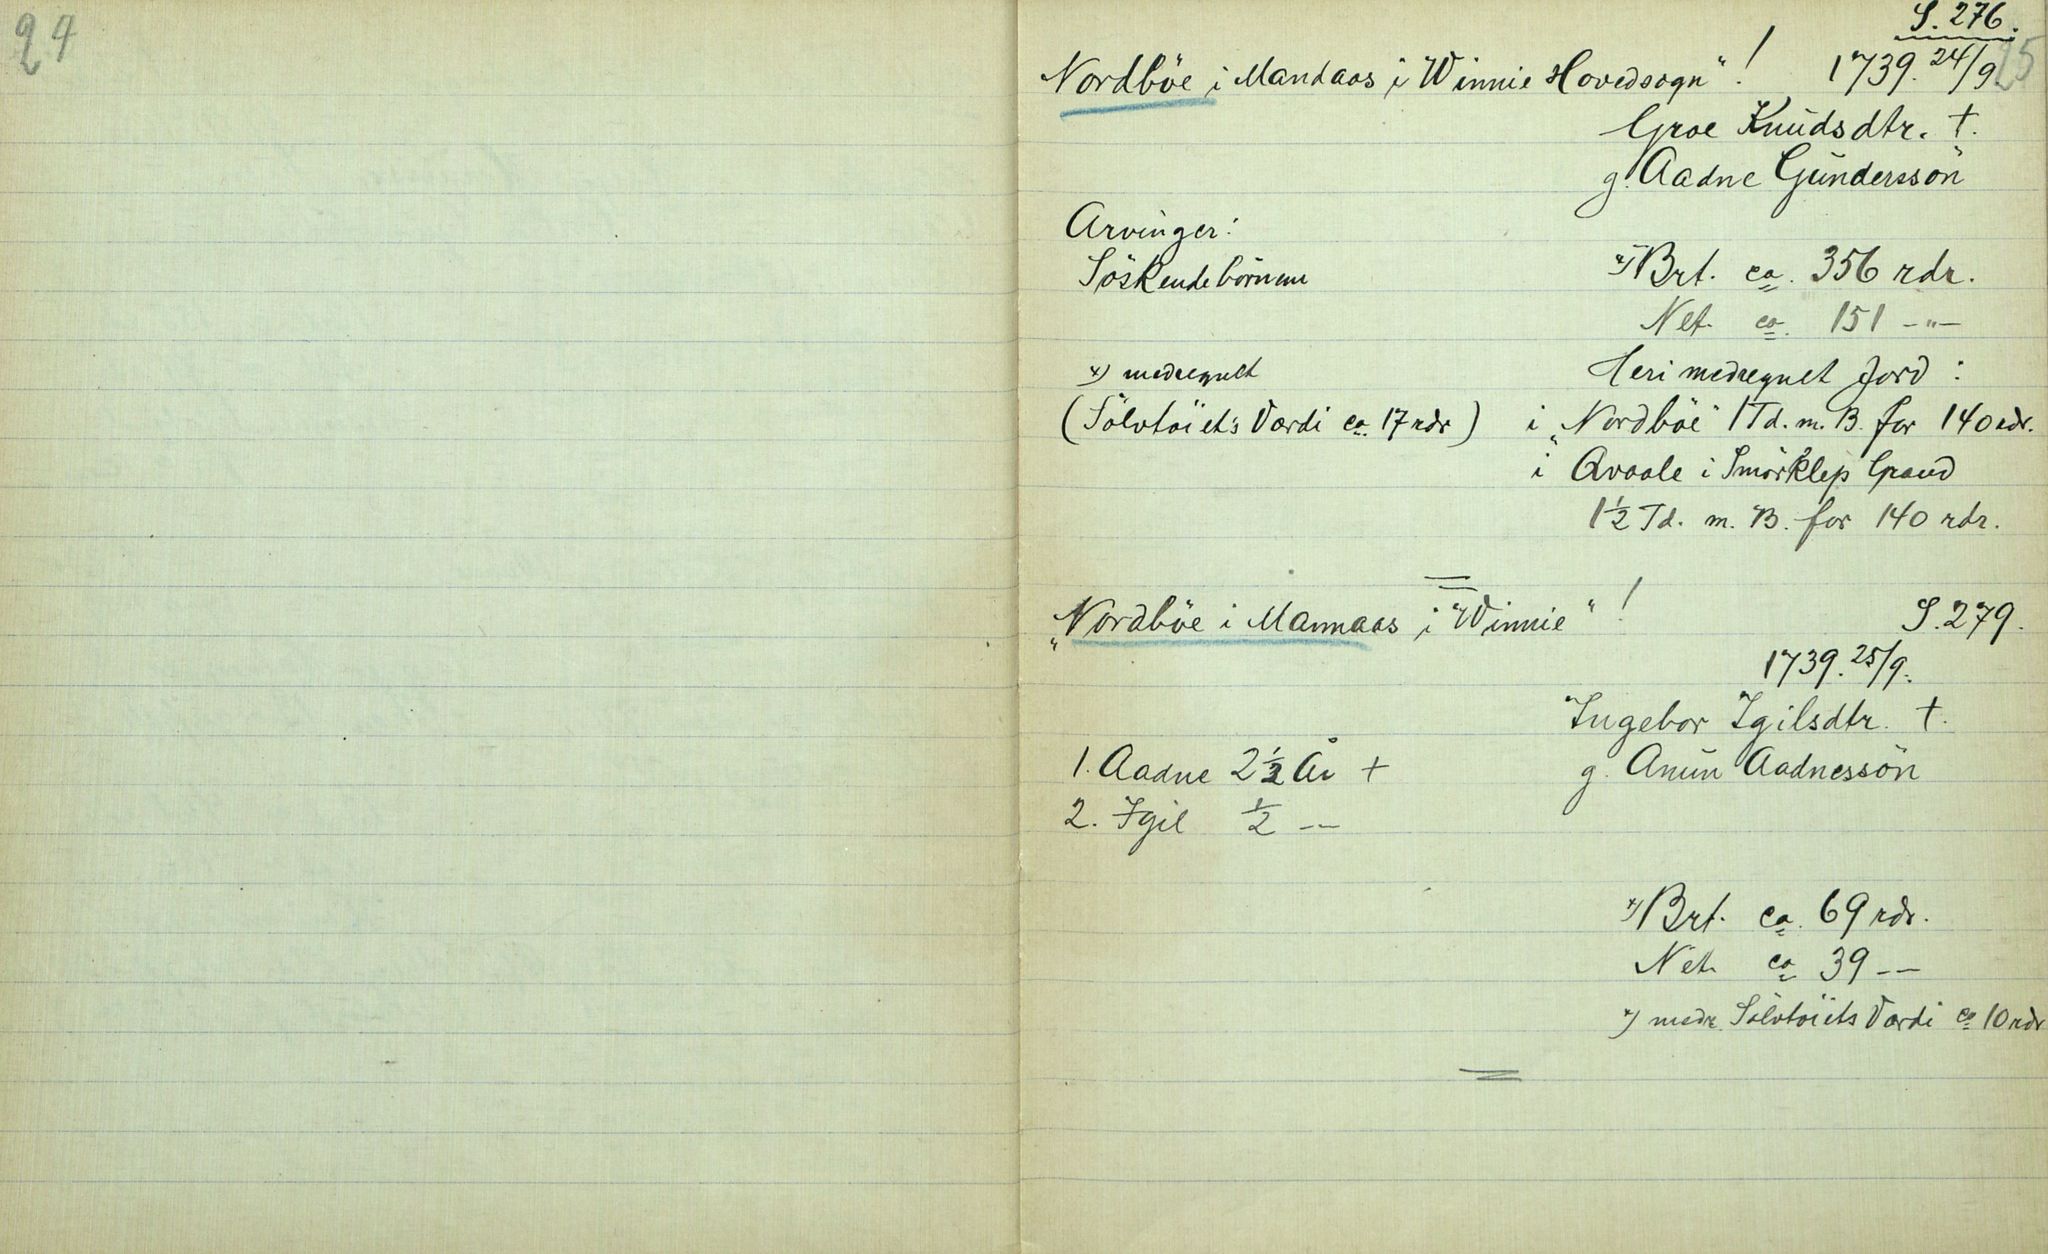 24
S. 276.
25
Nordböe i Mandaas i Winnie Hovedsogn" ! 1739. 24/9
Groe Knudsdtr. †.
g. Aadne Gunderssön
Arvinger:
Söskendebörnene
x) Brt. ca. 356 rdr.
Net. ca. 151 -"-
x) medregnet
(Sölvtöiets Værdi ca. 17 rdr)
Heri medregnet Jord :
i "Nordböe" 1 Td. m. B. for 140 rdr.
i Qvaale i Smörklep Grand
1½ Td. m. B. for 140 rdr.
"Nordböe i Mannaas i Winnie" !
S. 279.
1739. 25/9.
Ingebor Igilsdtr. †.
g. Anun Aadnessön
1. Aadne 2½ År +
2. Igil ½ --
x) Brt. ca. 69 rdr.
Net. ca 39 --
x) medr. Sölvtöiets Værdi ca 10 rdr